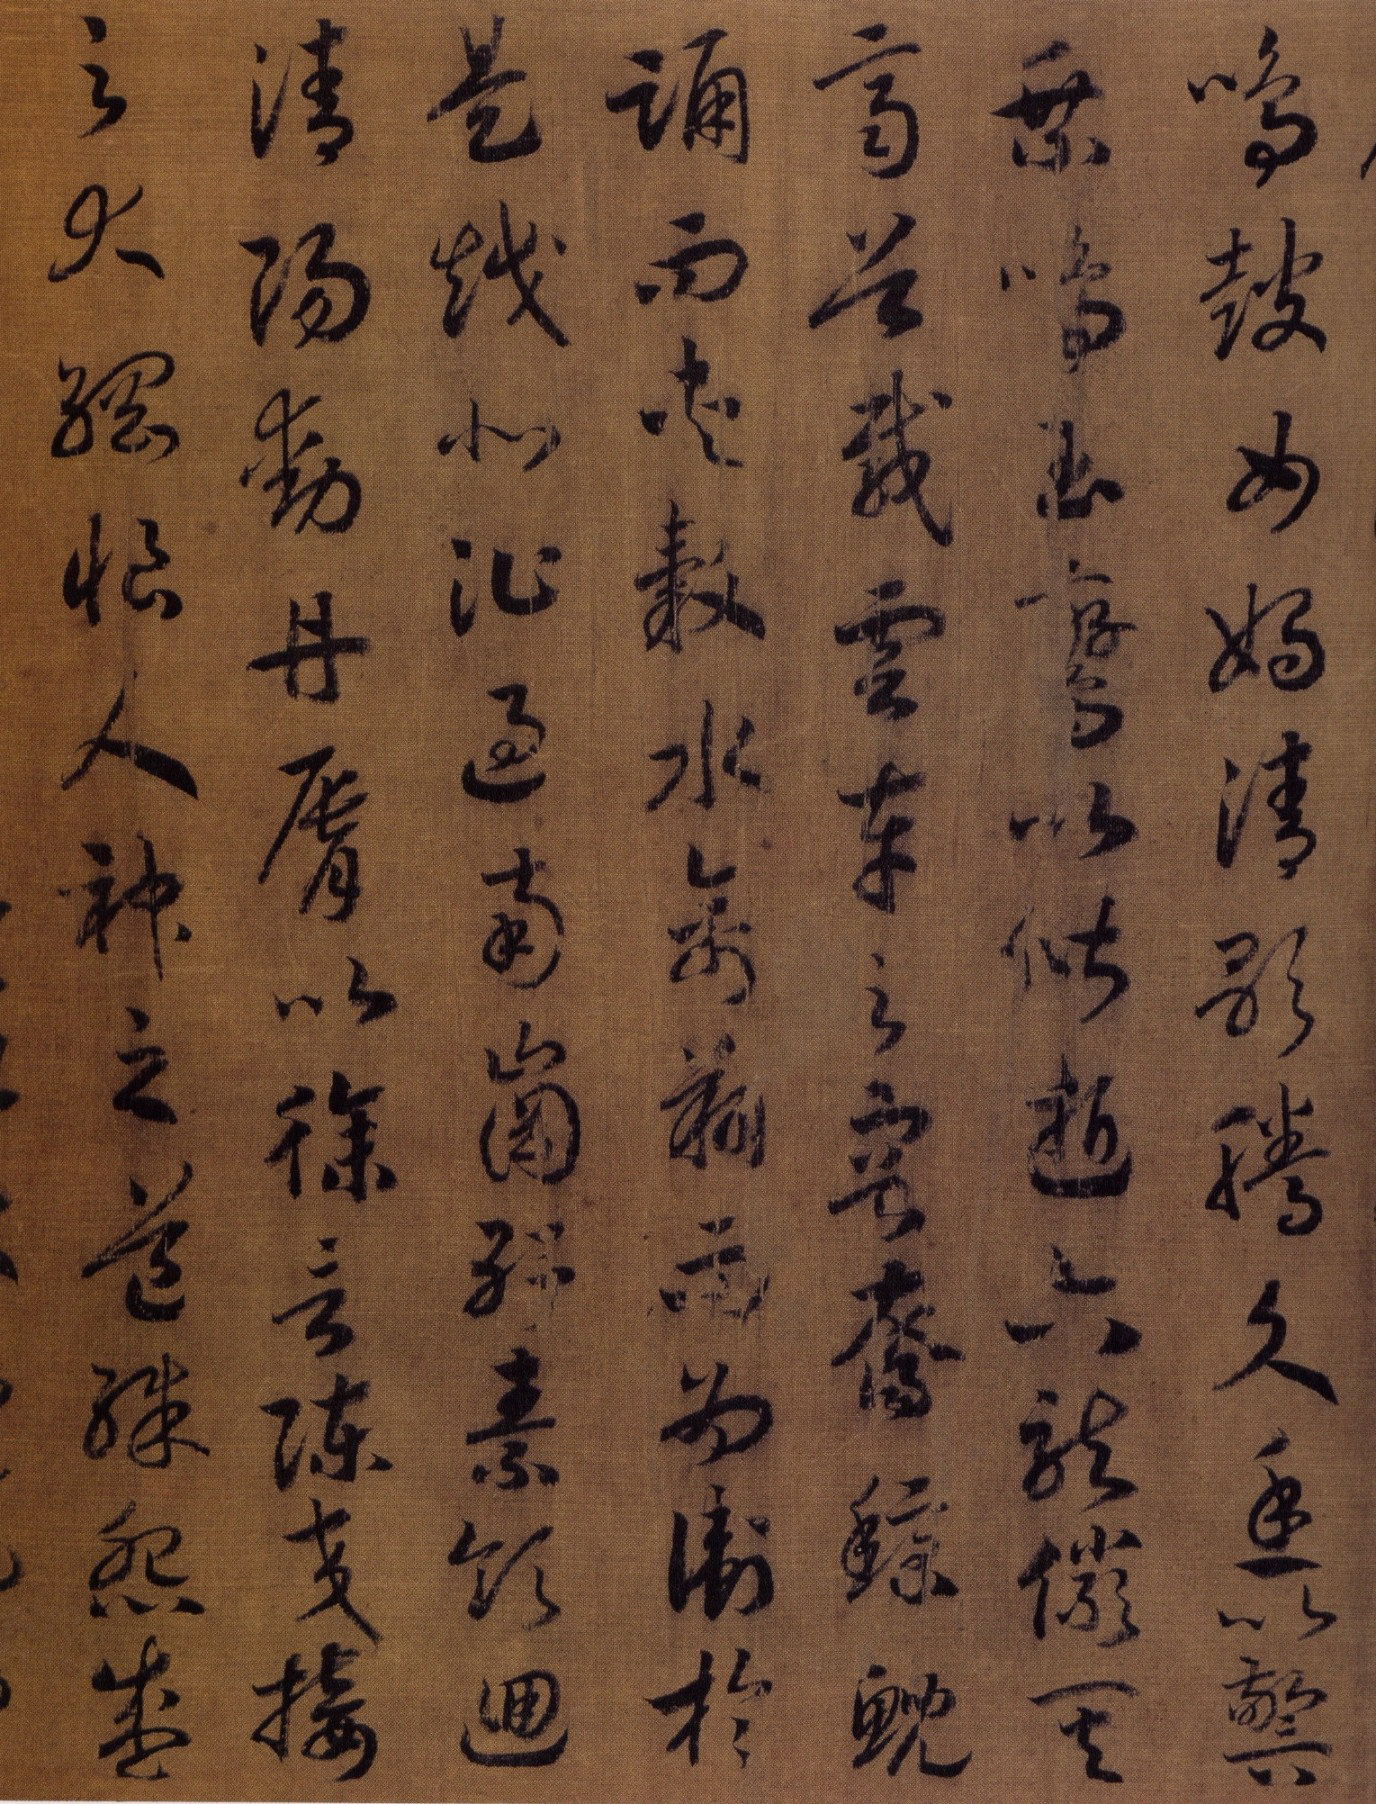 鳴鼓女媧清歌騰文魚以警
乘鳴玉鸞以偕逝六龍儼其
齊首載雲車之容裔鯨鯢
踊而夾轂水禽翔而為衛於
是越北沚過南岡紆素領迴
清陽動丹脣以徐言陳交接
之大綱恨人神之道殊怨盛